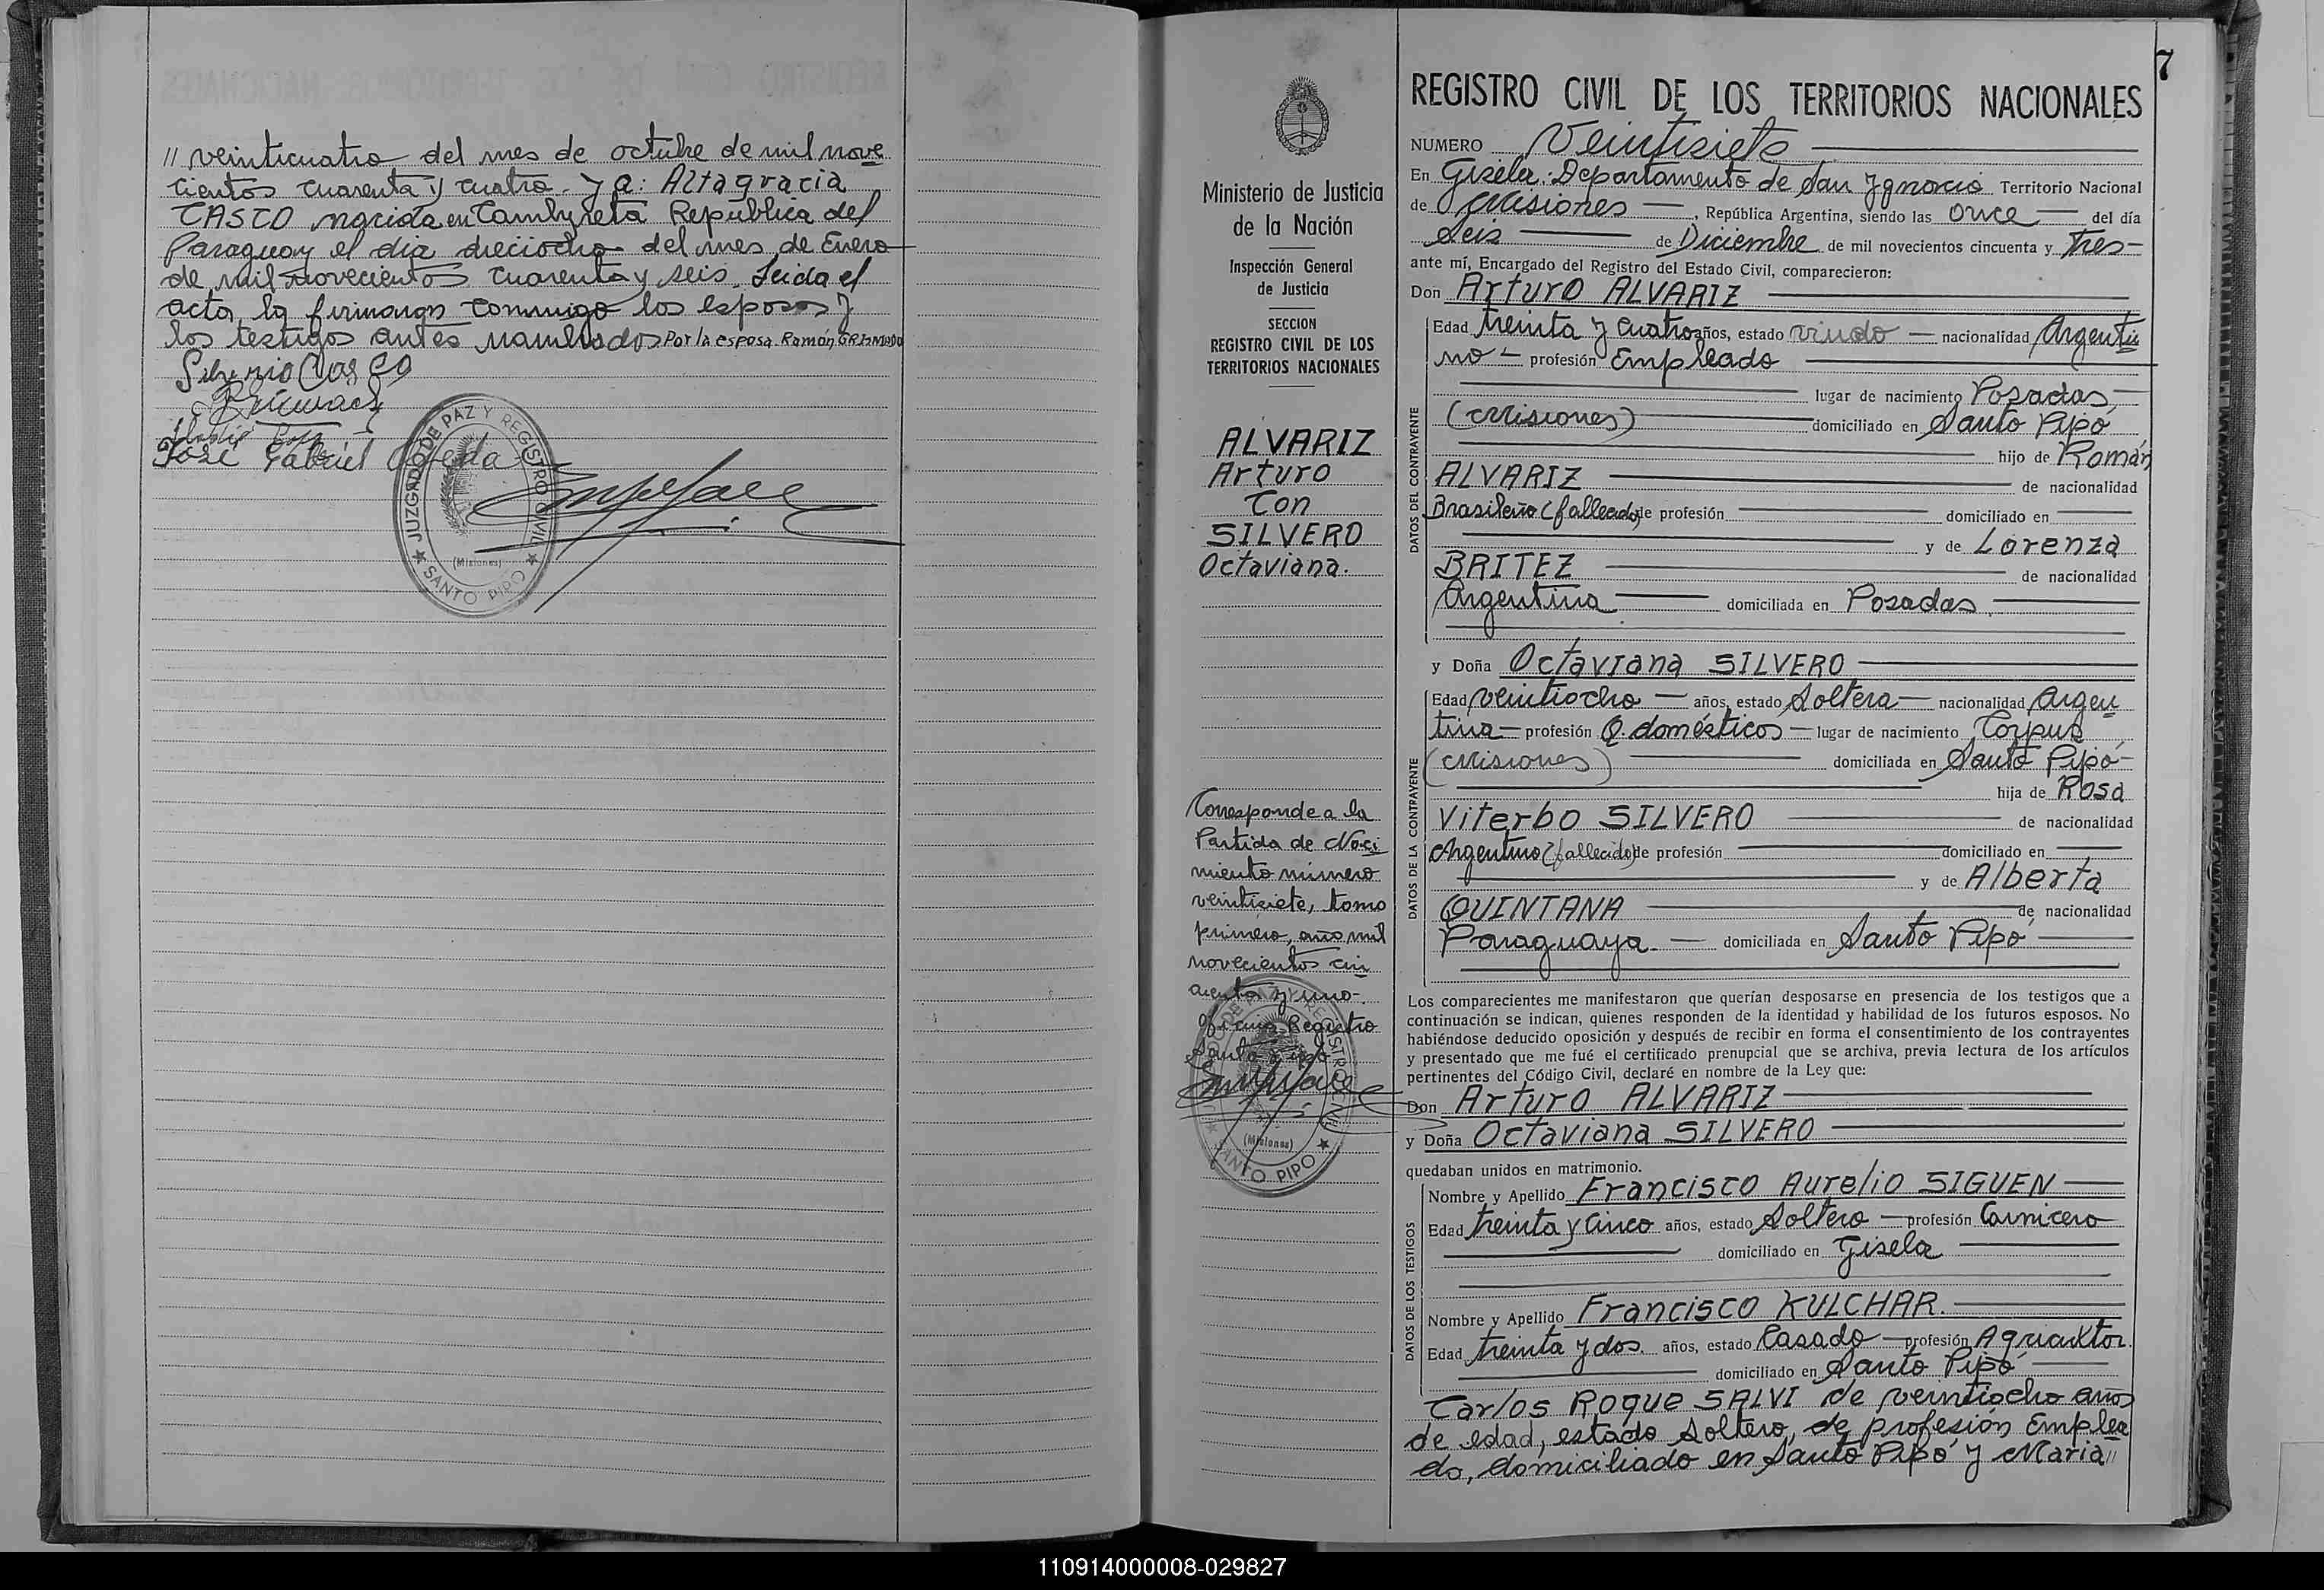 // veinticuatro del mes de octubre de mil nove
cientos cuarenta y cuatro. y a: Altagracia
CASCO nacida en Cambyretá República del
Paraguay el día dieciocho del mes de Enero
de mil novecientos cuarenta y seis. Leida el
acta, la firmaron conmigo los esposos y
los testigos antes nombrados Por la esposa. Ramón
Silverio Casco
José Gabriel Ojeda
JUZGADO DE PAZ Y REGISTRO CIVIL
(Misiones)
★ SANTO PIPO ★
Ministerio de Justicia
de la Nación
Inspección General
de Justicia
SECCION
REGISTRO CIVIL DE LOS
TERRITORIOS NACIONALES
ALVARIZ
Arturo
Con
SILVERO
Octaviana.
Corresponde a la
Partida de Naci
miento número
veintisiete, tomo
primero, año mil
novecientos cin
cuenta y uno-.
Oficina Registro
Santo Pipó
(Misiones)
SANTO PIPO ★
7
REGISTRO CIVIL DE LOS TERRITORIOS NACIONALES
NUMERO Veintisiete
En Gisela: Departamento de San Ygnacio Territorio Nacional
de Misiones, República Argentina, siendo las Once del día
Seis de Diciembre de mil novecientos cincuenta y Tres-
ante mí, Encargado del Registro del Estado Civil, comparecieron:
Don Arturo ALVARIZ
Edad treinta y cuatro años, estado viudo nacionalidad Argenti
no- profesión Empleado
lugar de nacimiento Posadas
(Misiones) domiciliado en Santo Pipó
hijo de Román
ALVARIZ de nacionalidad
Brasileño (fallecido) de profesión domiciliado en
y de Lorenza
BRITEZ de nacionalidad
Argentina domiciliada en Posadas
DATOS DEL CONTRAYENTE
y Doña Octaviana SILVERO
Edad veintiocho años, estado Soltera nacionalidad Argen
tina- profesión Q. domésticos lugar de nacimiento Corpus
(Misiones) domiciliada en Santo Pipó-
hija de Rosa
Viterbo SILVERO de nacionalidad
Argentino (fallecido) de profesión domiciliado en
y de Alberta
QUINTANA de nacionalidad
Paraguaya domiciliada en Santo Pipó
DATOS DE LA CONTRAYENTE
Los comparecientes me manifestaron que querían desposarse en presencia de los testigos que a
continuación se indican, quienes responden de la identidad y habilidad de los futuros esposos. No
habiéndose deducido oposición y después de recibir en forma el consentimiento de los contrayentes
y presentado que me fué el certificado prenupcial que se archiva, previa lectura de los artículos
pertinentes del Código Civil, declaré en nombre de la Ley que:
Don Arturo ALVARIZ
y Doña Octaviana SILVERO
quedaban unidos en matrimonio.
Nombre y Apellido Francisco Aurelio SIGUEN
Edad treinta y cinco años, estado Soltero profesión Carnicero
domiciliado en Gisela
Nombre y Apellido Francisco KULCHAR.
Edad treinta y dos. años, estado Casado profesión Agricultor.
domiciliado en Santo Pipó
DATOS DE LOS TESTIGOS
Carlos Roque SALVI de veintiocho años
de edad, estado soltero, de profesión Emplea
do, domiciliado en Santo Pipó y Maria //
110914000008-029827